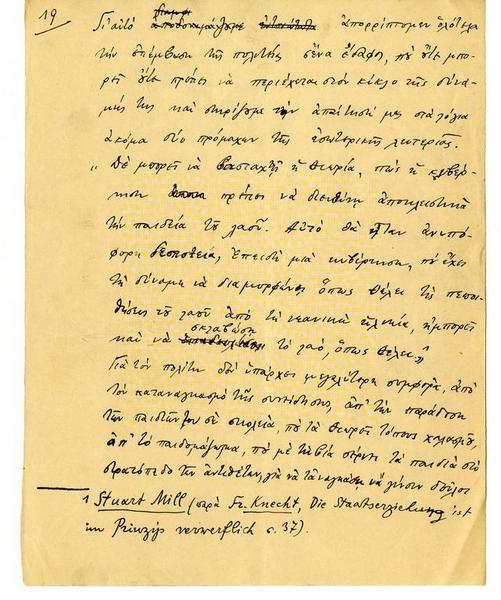 19
Γι' αὐτὸ ἀπορρίπτομεν ὁλότελα
τὴν ἐπέμβαση τῆς πολιτείας σ' ἕνα ἔδαφος, ποὺ οὔτε μπο-
ρεῖ οὔτε πρέπει νὰ περιέχεται στὸν κύκλο τῆς δύνα-
μής της καὶ στηρίζομε τὴν ἀπαίτησή μας στὰ λόγια
ἀκόμα δύο πρόμαχων τῆς ἐσωτερικῆς λευτεριᾶς.
„ Δὲ μπορεῖ νὰ βασταχτῆ ἡ θεωρία, πὼς ἡ κυβέρ-
νηση πρέπει νὰ διευθύνη ἀποκλειστικὰ
τὴν παιδεία τοῦ λαοῦ. Αὐτὸ θὰ ἦταν ἀνυπό-
φορη δεσποτεία, ἐπειδὴ μιὰ κυβέρνηση, ποὺ ἔχει
τὴ δύναμη νὰ διαμορφώνη ὅπως θέλει τὶς πεποι-
θήσεις τοῦ λαοῦ ἀπὸ τὴ νεανικὴ ἡλικία, ἠμπορεῖ
καὶ νὰ σκλαβώση τὸ λαό, ὅπως θέλει."
Γιὰ τὸν πολίτη δὲν ὑπάρχει μεγαλύτερη συμφορά, ἀπὸ
τὸν καταναγκασμὸ τῆς συνείδησης, ἀπ' τὴν παράδοση
τῶν παιδιῶν του σὲ σχολεῖα, ποὺ τὰ θεωρεῖ τόπους χαλασμοῦ,
ἀπ' τὸ παιδομάζωμα, ποὺ μὲ τὴ βία σέρνει τὰ παιδιὰ στὸ
στρατόπεδο τῶν ἀντιθέτων, γιὰ νὰ τ' ἀναγκάση νὰ γίνουν δοῦλοι
1 Stuart Mill (παρὰ Fr. Knecht, Die Staatserziehung ist
im Prinzip verwerflich σ. 37).